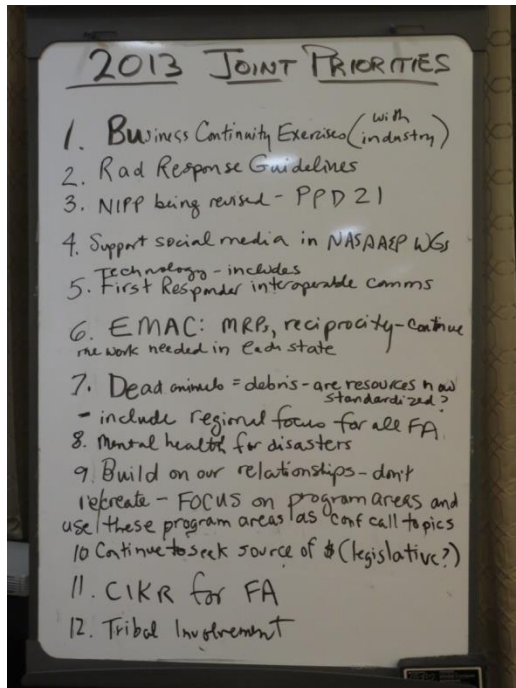 2013 JOINT PRIORITIES
1. Business Continuity Exercises (with industry)
2. Rad Response Guidelines
3. NIPP being revised - PPD 21
4. Support social media in NASAAEP WGs
Technology - includes
5. First Responder interoperable comms
6. EMAC: MRPs, reciprocity - continue
the work needed in each state
7. Dead animals = debris - are resources now
standardized?
- include regional focus for all FA
8. Mental health for disasters
9 Build on our relationships - don't
recreate - FOCUS on program areas and
use these program areas as conf call topics
10 Continue to seek source of $ (legislative?)
11. CIKR for FA
12. Tribal Involvement